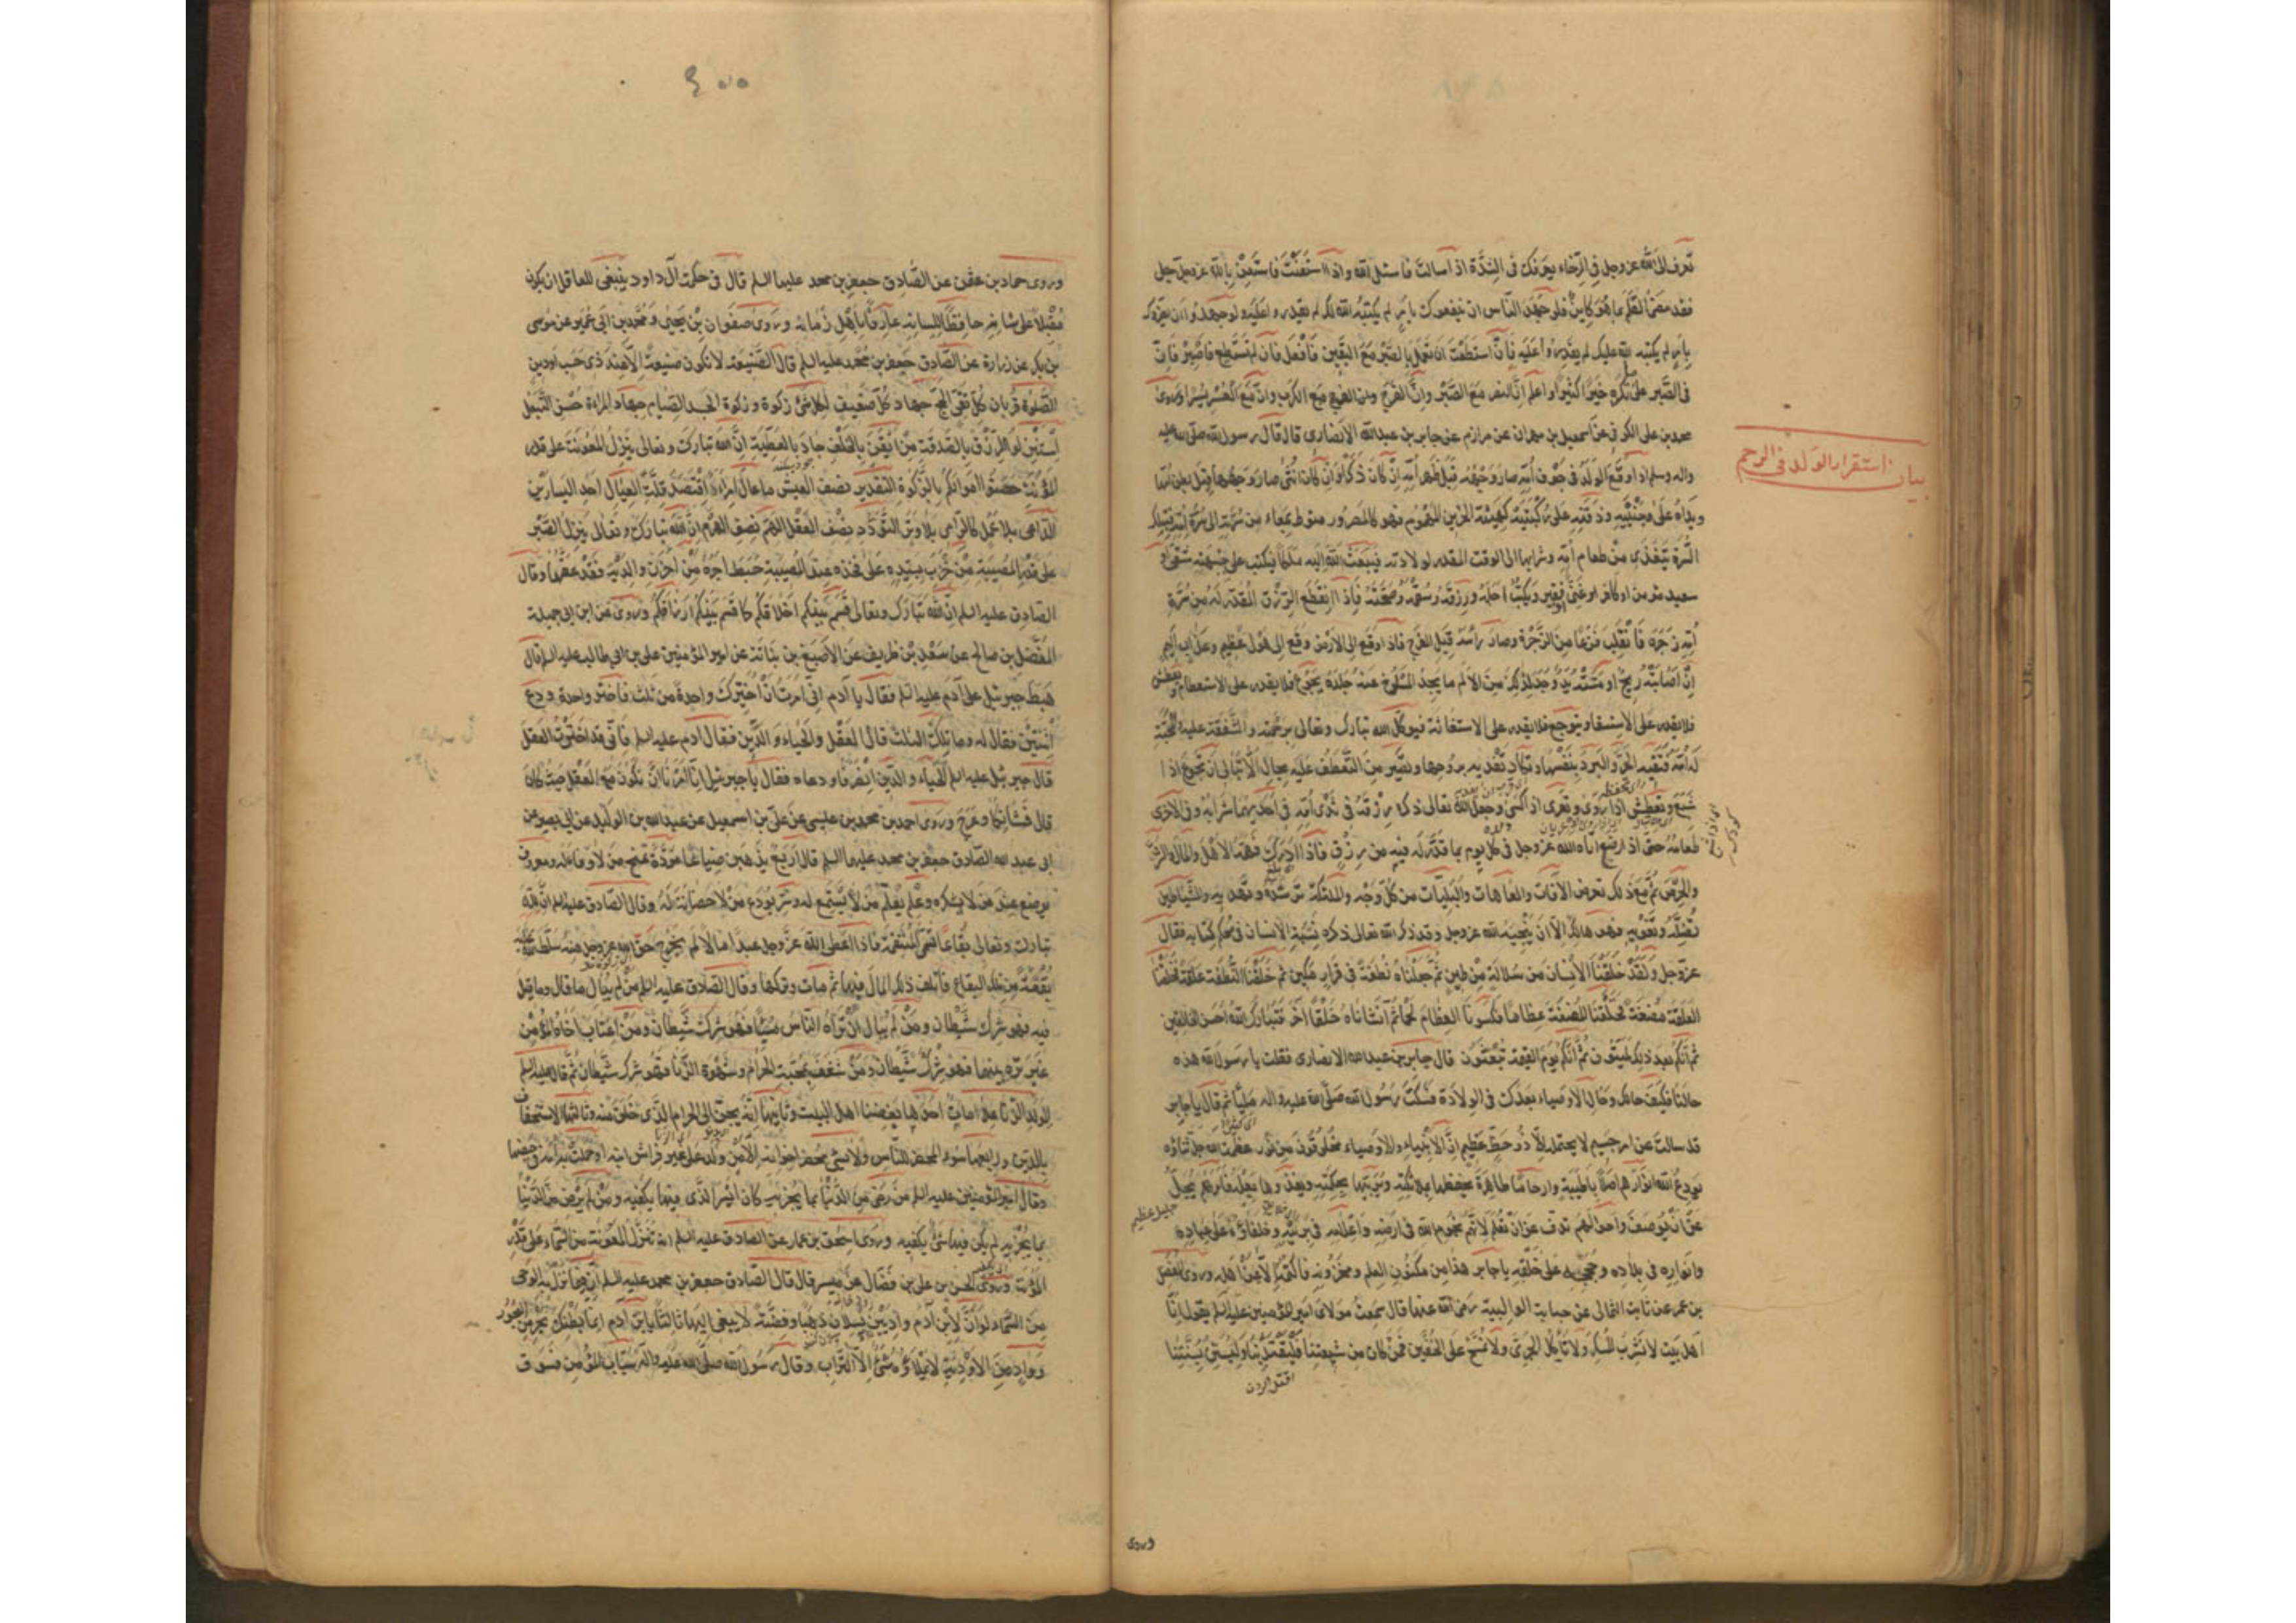 تعرف الى الله عز وجل فى الرخاء يعرفك فى الشدة اذا سالت فاسئل الله واذا استعنت فاستعن بالله عز وجل
فقد مضى القلم بما هو كاين فلو جهد الناس ان ينفعوك بامر لم يكتبه الله لك لم يقدروا عليه ولو جهدوا ان يضروك
بامر لم يكتبه الله عليك لم يقدروا عليه فان استطعت ان تعمل بالصبر مع اليقين فافعل فان لم تستطع فاصبر فان
فى الصبر على ما تكره خيرا كثيرا واعلم ان النصر مع الصبر وان الفرج مع الكرب وان مع العسر يسرا وروى
محمد بن على الكوفى عن اسمعيل بن مهران عن مرازم عن جابر بن عبدالله الانصارى قال قال رسول الله صلى الله عليه
واله وسلم اذا وقع الولد فى جوف امه صار وجهه قبل ظهر امه ان كان ذكرا وان كان انثى صار وجهها قبل بطن امها
بيان استقرار الولد فى الرحم
ويداه على وجنتيه وذقنه على ركبتيه كهيئة الحزين المهموم فهو كالمصرور منوط بمعاء من سرته الى سرة امه فبتلك
السرة يتغذى من طعام امه وشرابها الى الوقت المقدر لولادته فيبعث الله اليه ملكا فيكتب على جبهته شقى او
سعيد مؤمن او كافر او غنى او فقير ويكتب اجله ورزقه وسقمه وصحته فاذا انقطع الرزق المقدر له من سرة
امه زجره فانقلب فزعا من الزجرة وصار راسه قبل الفرج فاذا وقع الى الارض وقع الى هول عظيم وعذاب اليم
ان اصابته ريح او مسته يد وجد لذلك من الالم ما يجد المسلوخ عنه جلده يجوع فلا يقدر على الاستطعام ويعطش
فلا يقدر على الاستسقا ويتوجع فلا يقدر على الاستغاثة فيوكل الله تبارك وتعالى برحمته والشفقة عليه والمحبة
له امه فتقيه الحر والبرد بنفسها وتكاد تفديه بروحها وتصير من التعطف عليه بحال لا تبالى ان تجوع اذا
شبع وتعطش اذا روى وتعرى اذا كسى وجعل الله تعالى ذكره رزقه فى ثدى امه فى احديهما شرابه وفى الاخرى
طعامه حتى اذا رضع اتاه الله عز وجل فى كل يوم بما قدر له فيه من رزق فاذا ادرك فهمه الاهل والمال والشره
والحرص ثم مع ذلك تعرض الافات والعاهات والبليات من كل وجه والملئكة ترشده وتهديه والشياطين
تضله وتغويه فهو هالك الا ان ينجيه الله عز وجل وقد ذكر الله تعالى ذكره نسبة الانسان فى محكم كتابه فقال
عز وجل ولقد خلقنا الانسان من سلالة من طين ثم جعلناه نطفة فى قرار مكين ثم خلقنا النطفة علقة فخلقنا
العلقة مضغة فخلقنا المضغة عظاما فكسونا العظام لحما ثم انشاناه خلقا آخر فتبارك الله احسن الخالقين
ثم انكم بعد ذلك لميتون ثم انكم يوم القيمة تبعثون قال جابر بن عبدالله الانصارى فقلت يا رسول الله هذه
حالنا فكيف حالك وحال الاوصياء بعدك فى الولادة فسكت رسول الله صلى الله عليه واله مليا ثم قال يا جابر
قد سالت عن امر جسيم لا يحتمله الا ذو حظ عظيم ان الانبياء والاوصياء مخلوقون من نور عظمت الله جل ثناؤه
يودع الله انوارهم اصلابا طيبة وارحاما طاهرة يحفظها بملائكته ويربيها بحكمته ويغذوها بعلمه فامرهم يجل
عن ان يوصف واحوالهم تدق عن ان تعلم لانهم نجوم الله فى ارضه واعلامه فى بريته وخلفاؤه على عباده
وانواره فى بلاده وحججه على خلقه يا جابر هذا من مكنون العلم ومخزونه فاكتمه الا من اهله وروى المفضل
بن عمر عن ثابت الثمالى عن حبابة الوالبية رضى الله عنها قال سمعت مولاى امير المؤمنين عليه السلم يقول انا
اهل بيت لا نشرب المسكر ولا ناكل الجرى ولا نمسح على الخفين فمن كان من شيعتنا فليقتد بنا وليستن بسنتنا
وروى
وروى حماد بن عثمن عن الصادق جعفر بن محمد عليهما السلم قال فى حكمت آل داود ينبغى للعاقل ان يكون
مقبلا على شانه حافظا للسانه عارفا باهل زمانه وروى صفوان بن يحيى ومحمد بن ابى عمير عن موسى
بن بكر عن زرارة عن الصادق جعفر بن محمد عليه السلم قال الصنيعة لا تكون صنيعة الا عند ذى حسب او دين
الصلوة قربان كل تقى الحج جهاد كل ضعيف لكل شئ زكوة وزكوة الجسد الصيام جهاد المراءة حسن التبعل
استنزلوا الرزق بالصدقة من ايقن بالخلف جاد بالعطية ان الله تبارك وتعالى ينزل المعونة على قدر
المؤنة حصنوا اموالكم بالزكوة التقدير نصف العيش ما عال امرء اقتصد قلة العيال احد اليسارين
الداعى بلا عمل كالرامى بلا وتر التودد نصف العقل الهم نصف الهرم ان الله تبارك وتعالى ينزل الصبر
على قدر المصيبة من ضرب بيده على فخذه عند المصيبة حبط اجره من احزن والديه فقد عقهما وقال
الصادق عليه السلم ان الله تبارك وتعالى قسم بينكم اخلاقكم كما قسم بينكم ارزاقكم وروى عن ابن ابى جميلة
المفضل بن صالح عن سعد بن طريف عن الاصبغ بن نباتة عن امير المؤمنين على بن ابى طالب عليه السلم قال
هبط جبرئيل على آدم عليه السلم فقال يا آدم انى امرت ان اخيرك واحدة من ثلث فاختر واحدة ودع
اثنتين فقال له وما تلك الثلث قال العقل والحياء والدين فقال آدم عليه السلم فانى قد اخترت العقل
قال جبرئيل عليه السلم للحياء والدين انصرفا ودعاه فقال يا جبرئيل انا امرنا ان نكون مع العقل حيث كان
قال فشانكما وعرج وروى احمد بن محمد بن عيسى عن على بن اسمعيل عن عبدالله بن الوليد عن ابى بصير عن
ابى عبد الله الصادق جعفر بن محمد عليهما السلم قال اربع يذهبن ضياعا مودة تمنح من لا وفاء له ومعروف
يوضع عند من لا يشكره وعلم يعلم من لا يستمع له وسر يودع من لا حصانة له وقال الصادق عليه السلم ان لله
تبارك وتعالى بقاعا تسمى المنتقمة فاذا اعطى الله عز وجل عبدا مالا لم يخرج حق الله عز وجل منه سلط الله عليه
بقعة من تلك البقاع فاتلف ذلك المال فيها ثم مات وتركها وقال الصادق عليه السلم من لم يبال ما قال وما قيل
فيه فهو شرك شيطان ومن لم يبال ان تراه الناس مسيئا فهو شرك شيطان ومن اغتاب اخاه المؤمن
غير تره بينهما فهو شرك شيطان ومن شغف بمحبة الحرام وشهوة الزنا فهو شرك شيطان ثم قال عليه السلم
لولد الزنا علامات احدها بغضنا اهل البيت وثانيها انه يحن الى الحرام الذى خلق منه وثالثها الاستخفاف
بالدين ورابعها سوء المحضر للناس ولا يسئ محضر اخوانه الا من ولد على غير فراش ابيه او حملت به امه فى حيضها
وقال امير المؤمنين عليه السلم من رضى من الدنيا بما يجزيه كان ايسر الذى فيها يكفيه ومن لم يرض من الدنيا
بما يجزيه لم يكن فيها شئ يكفيه وروى اسحق بن عمار عن الصادق عليه السلم انه تنزل المعونة من السماء على قدر
المؤنة وروى الحسن بن على بن فضال عن ميسر قال قال الصادق جعفر بن محمد عليه السلم ان فيما نزل به الوحى
من السماء لو ان لابن آدم واديين يسيلان ذهبا وفضة لابتغى اليهما ثالثا يا ابن آدم انما بطنك بحر من البحور
وواد من الاودية لا يملاؤه شئ الا التراب وقال رسول الله صلى الله عليه واله سباب المؤمن فسوق